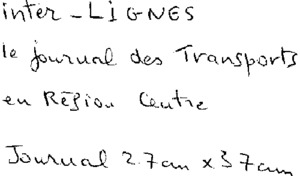 inter-LIGNES
le journal des Transports
en Région Centre
Journal 27cm x 37cm